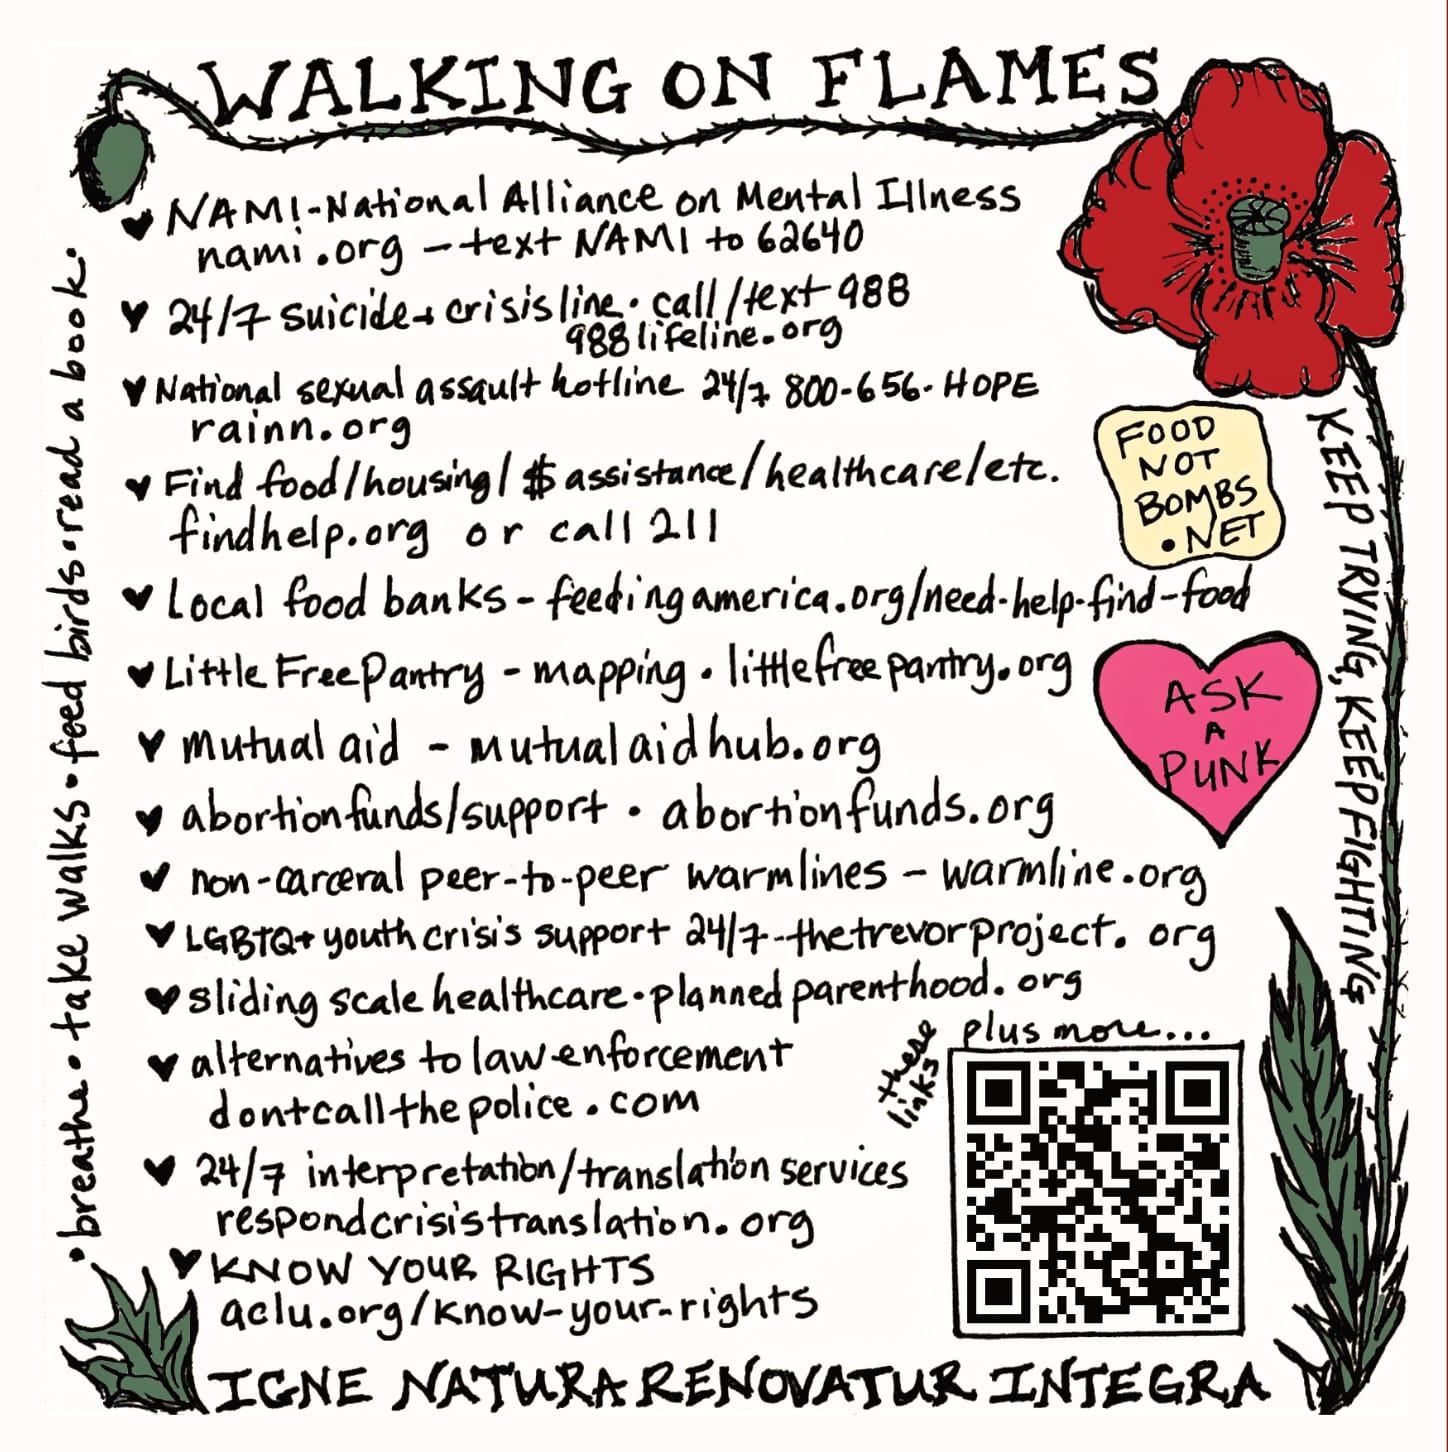 WALKING ON FLAMES
♥ NAMI-National Alliance on Mental Illness
nami.org — text NAMI to 62640
♥ 24/7 suicide + crisis line · call/text 988
988lifeline.org
♥ National sexual assault hotline 24/7 800-656-HOPE
rainn.org
♥ Find food/housing/$ assistance/healthcare/etc.
findhelp.org or call 211
FOOD
NOT
BOMBS
.NET
♥ Local food banks - feedingamerica.org/need-help-find-food
♥ Little Free Pantry - mapping · littlefreepantry.org
ASK
A
PUNK
♥ mutual aid - mutualaidhub.org
♥ abortion funds/support · abortionfunds.org
♥ non-carceral peer-to-peer warmlines - warmline.org
♥ LGBTQ+ youth crisis support 24/7 - thetrevorproject.org
♥ sliding scale healthcare · plannedparenthood.org
♥ alternatives to law enforcement
dontcallthepolice.com
these
links
plus more...
♥ 24/7 interpretation/translation services
respondcrisistranslation.org
♥ KNOW YOUR RIGHTS
aclu.org/know-your-rights
IGNE NATURA RENOVATUR INTEGRA
· breathe · take walks · feed birds · read a book ·
KEEP TRYING, KEEP FIGHTING